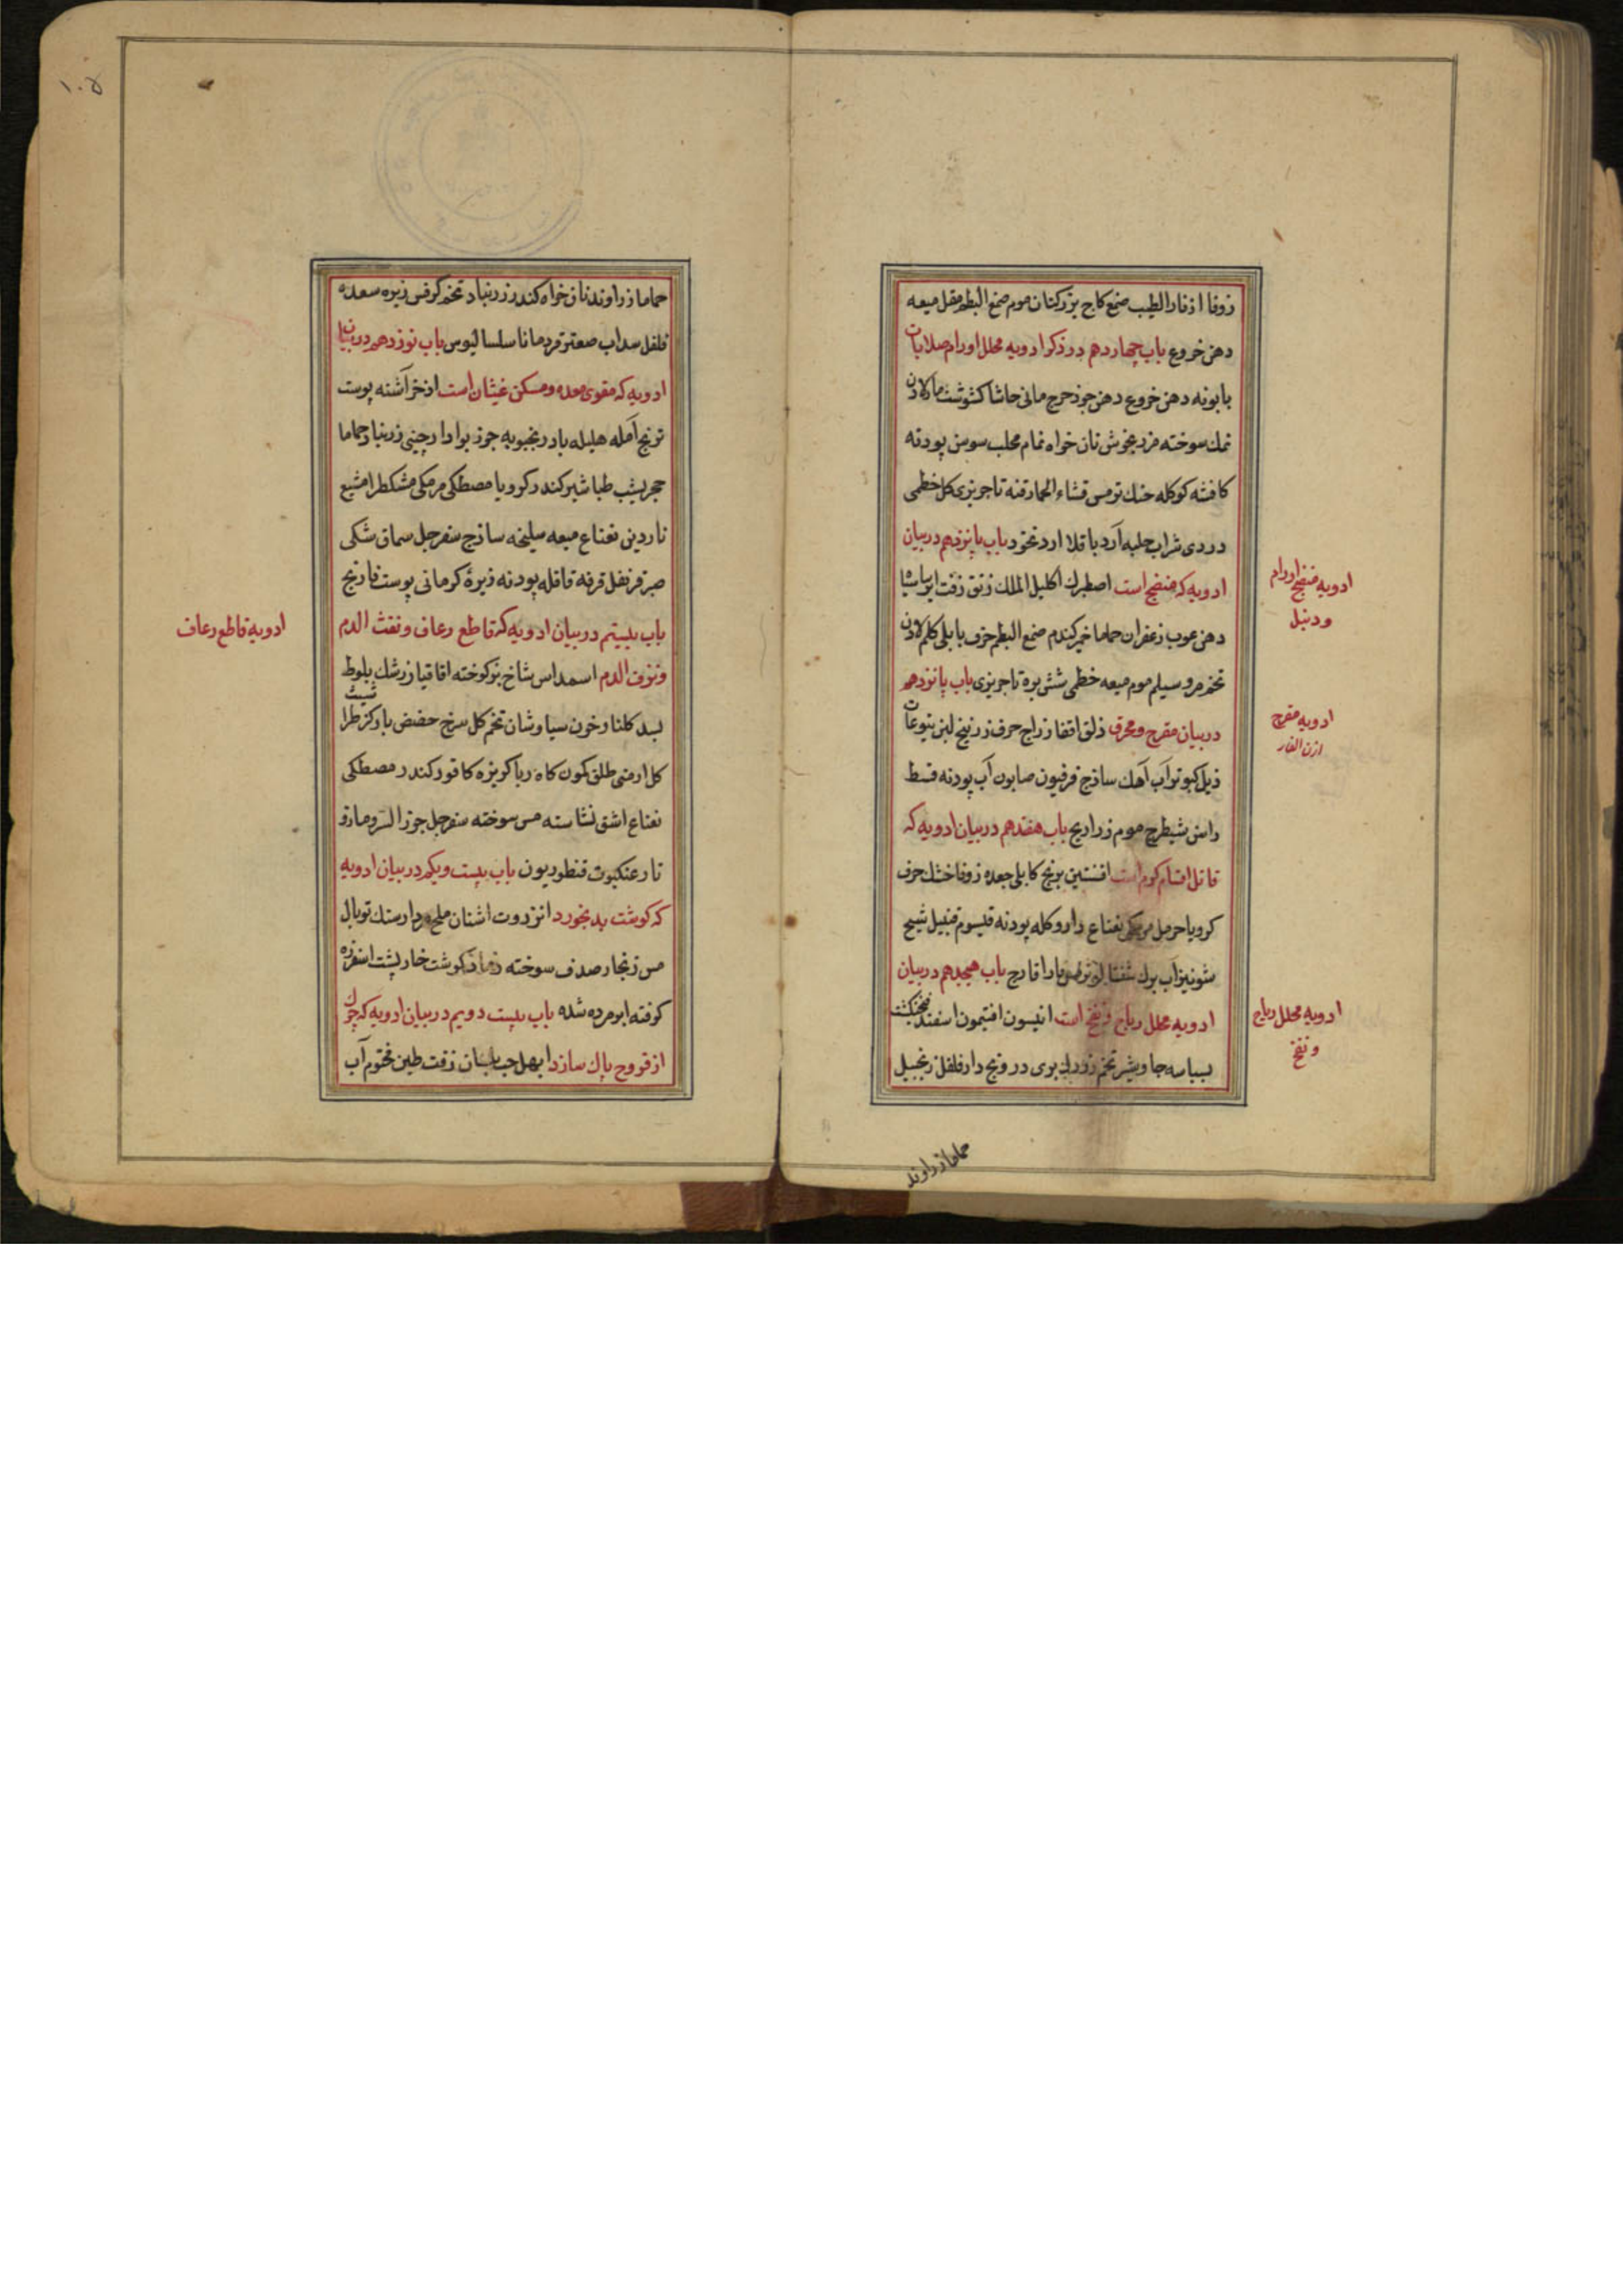 زوفا اذفار الطیب صمغ کاج بزر کتان موم صمغ البطم مقل میعه
دهن خروع باب چهاردهم در ذکر ادویه محلل اورام صلابات
بابونه دهن خروع دهن جوز حرج مانی حاشا کشوشت ماء لادن
نمک سوخته مرزنجوش نان خواه نمام محلب سوسن پودنه
کافشه کوکله حنک ترمس قثاء الحمار قنه تاجریزی کل خطمی
دردی شراب حلبه آرد باقلا ارد نخود باب پانزدهم در بیان
ادویه که منضج است اصطرک اکلیل الملک زفت ایرسا
ادویه منضج اورام
و دنبل
دهن عوب زعفران حماما خمیر کندم صمغ البطم حرف بابلی کلم لادن
تخم مرو سیلم موم میعه خطمی شش بره تاجریزی باب پانزدهم
ادویه مقرح
اذن الفار
در بیان مقرح و محرق ذلق اقفا زراج حرف زرنیخ لبن یتوعات
ذبل کبوتر آب آهک ساذج فرفیون صابون آب پودنه قسط
راسن شیطرج موم زراریح باب هفدهم در بیان ادویه که
قاتل اقسام کرم است افسنتین برنج کابلی جعده زوفا خشک حرف
کرویا حرمل مرمکی نعناع دارو کله پودنه قیسوم قنبیل شیح
شونیز آب برک شفتالو ترمس باب هیجدهم در بیان
ادویه محلل ریاح و نفخ است انیسون افتیمون اسفند فنجنکشت
ادویه محلل ریاح
و نفخ
بسباسه جاوشیر تخم زردک بری درونج دارفلفل زنجبیل
حماما زراوند
۱۰۵
حماما زراوند نان خواه کندر زرنباد تخم کرفس زیره سعده
فلفل سداب صعتر قردمانا سلسالیوس باب نوزدهم در بیان
ادویه که مقوی معده و مسکن غیثان است اذخر آشنه پوست
ترنج آمله هلیله بادرنجبویه جوز بوا دارچینی زرنباد حماما
حجر یشب طباشیر کندر کرویا مصطکی مرمکی مشکطرامشیع
ناردین نعناع میعه سلیخه ساذج سفرجل سماق شکی
صبر قرنفل قرفه قاقله پودنه زیرهٔ کرمانی پوست نارنج
باب بیستم در بیان ادویه که قاطع رعاف و نفث الدم
ادویه قاطع رعاف
و نزف الدم است دم اس شاخ بز کوخته اقاقیا زرشک بلوط
بسد کلنار خون سیاوشان تخم کل سرخ حضض بارکز طرا
شبت
کل ارمنی طلق کمون کاه ربا کزیزه کافور کندر مصطکی
نعناع اشق نشاسته مس سوخته سفرجل جوز السرو مازو
تار عنکبوت قنطوریون باب بیست و یکم در بیان ادویه
که کوشت بد بخورد انزروت اشنان ملح مردارسنک توبال
مس زنجار صدف سوخته رماد کوشت خارپشت اسفره
کوفته ابر مرده شده باب بیست دویم در بیان ادویه که چرک
از قروح پاک سازد ابهل حب بلسان زفت طین مختوم آب